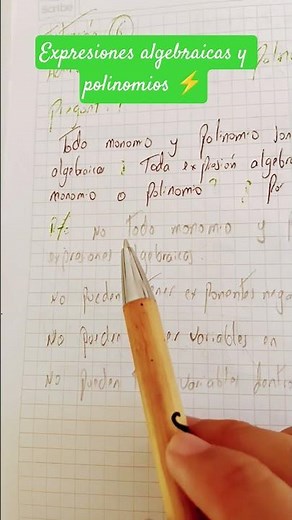 Scribe
Expresiones algebraicas y
polinomios ⚡
Pregunta
Todo monomio y Polinomio son
algebraica ¿ Toda expresión algebra
monomio o Polinomio? ¿ Por
R/ No Todo monomio y p
expresiones algebraicas.
No pueden tener exponentes nega
No pueden variables en
No pueden variables dentr